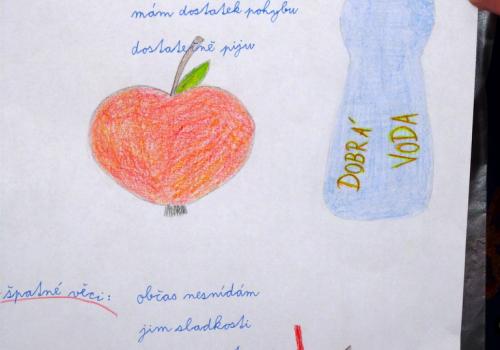 mám dostatek pohybu
dostatečně piju
DOBRÁ
VODA
špatné věci:
občas nesnídám
jim sladkosti